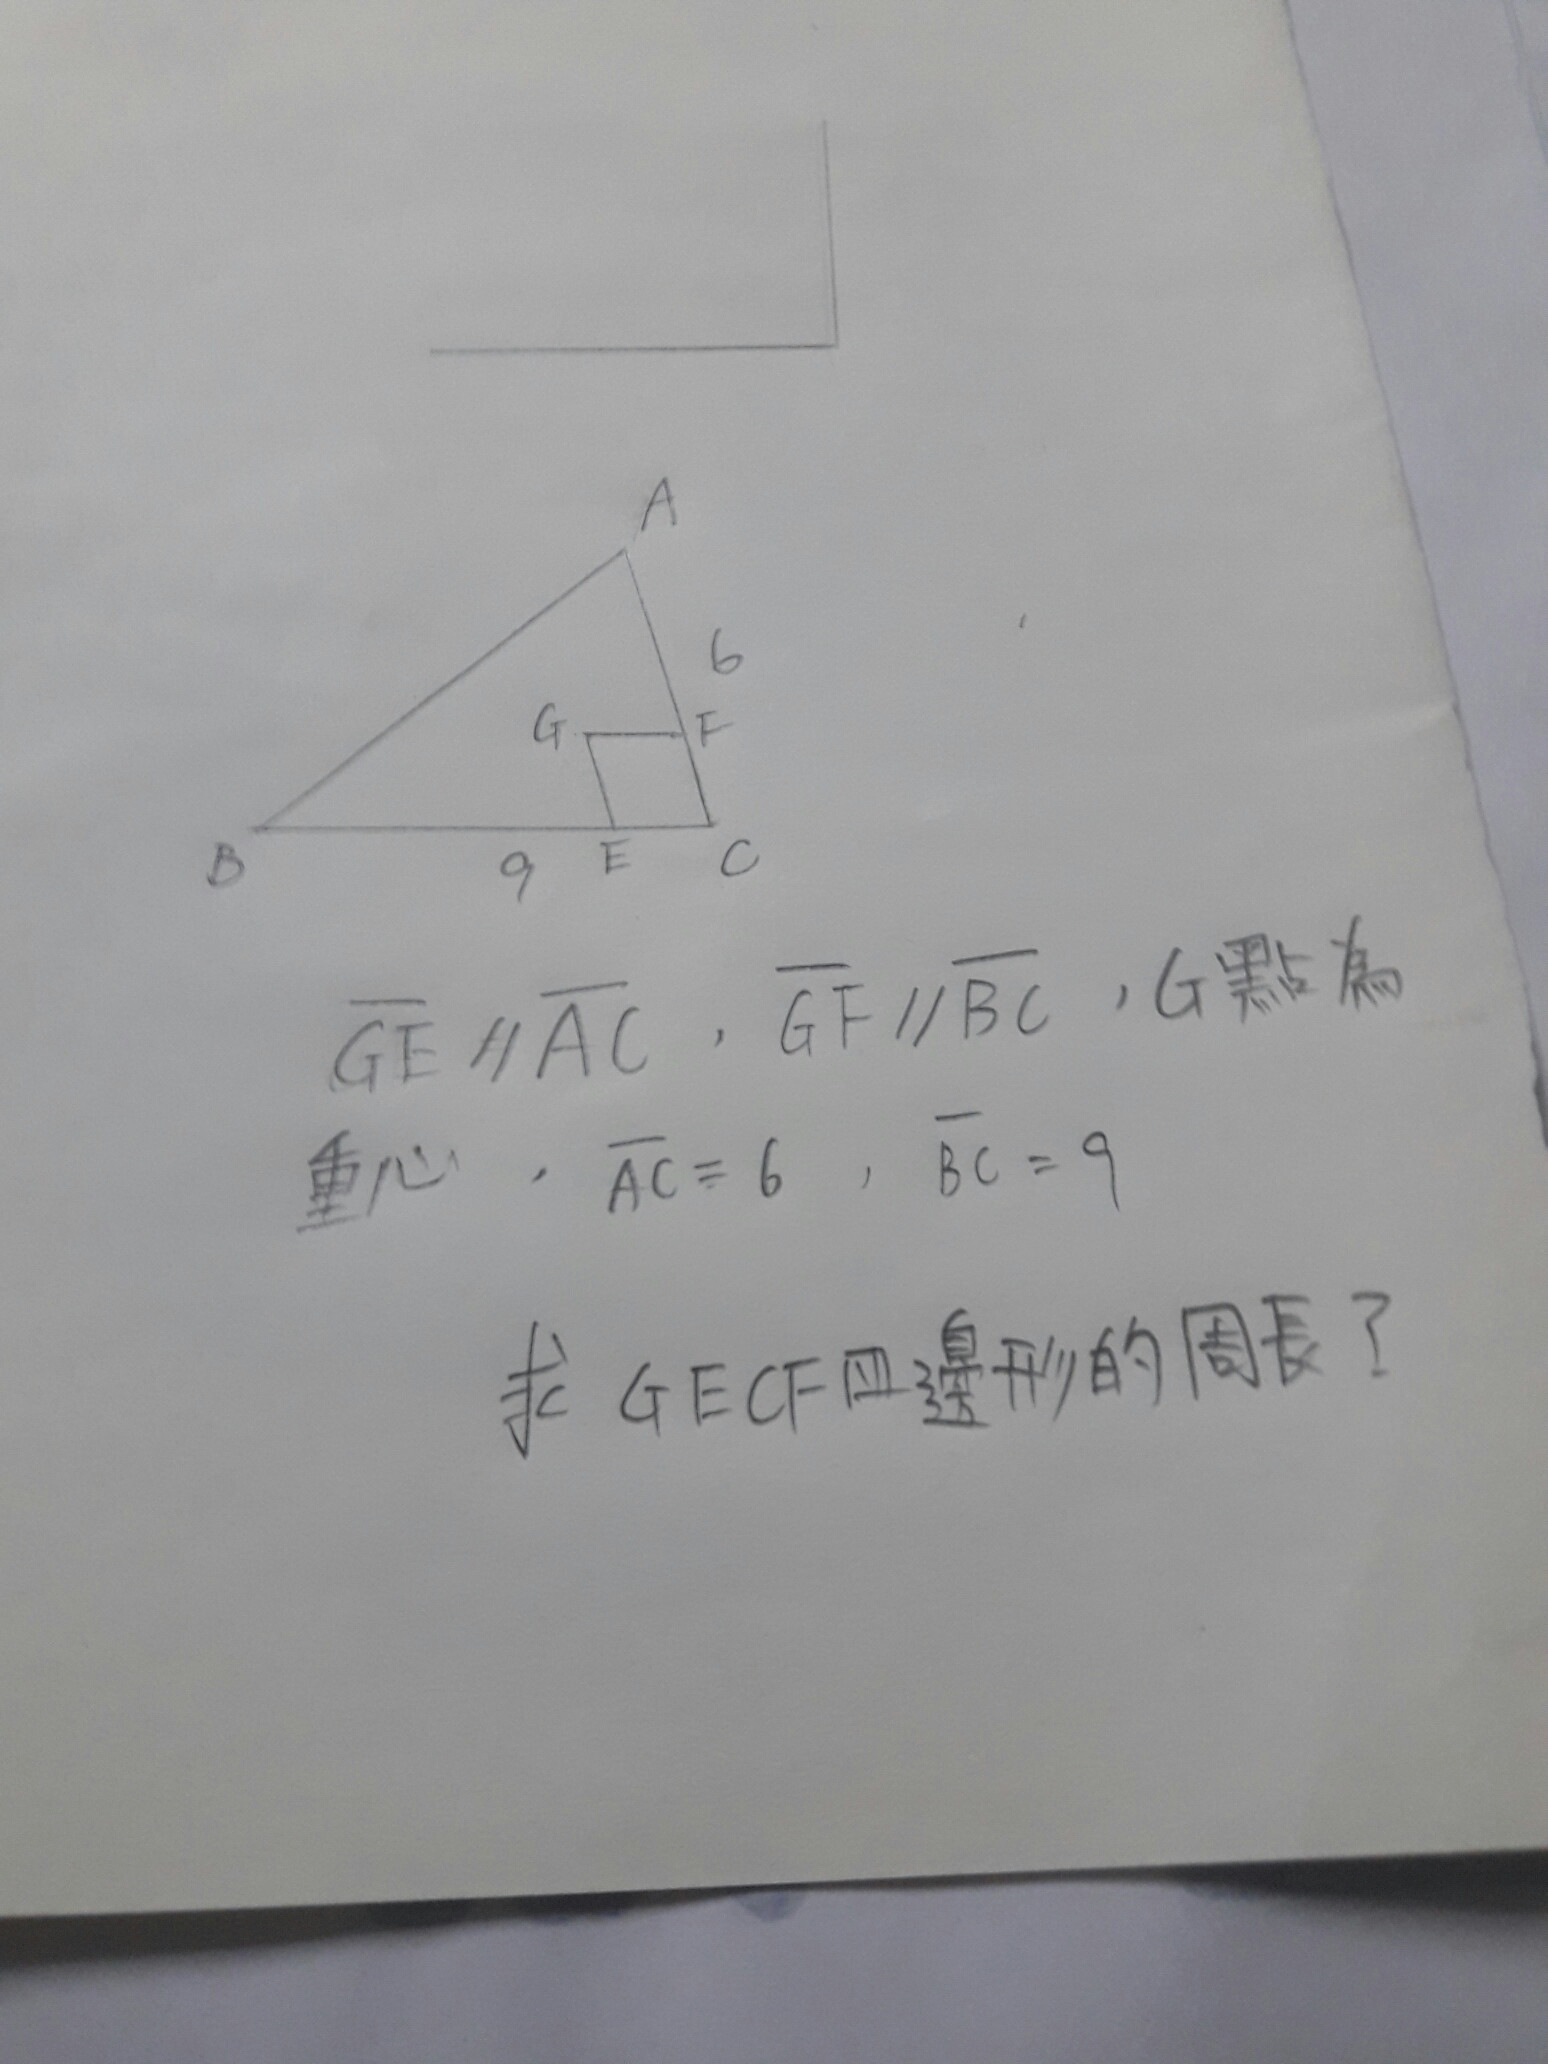 A
6
G F
B 9 E C
GE // AC , GF // BC , G點為
重心 , AC = 6 , BC = 9
求 GECF四邊形的周長？